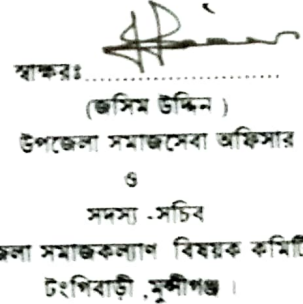 স্বাক্ষরঃ..............................
(জসিম উদ্দিন )
উপজেলা সমাজসেবা অফিসার
ও
সদস্য -সচিব
জলা সমাজকল্যাণ বিষয়ক কমিটি
টংগিবাড়ী ,মুন্সীগঞ্জ ।